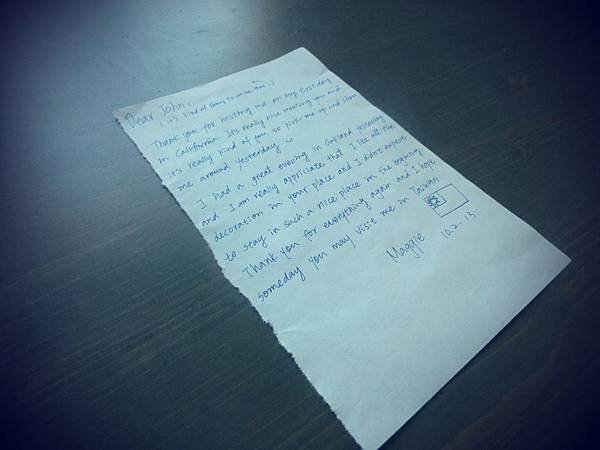 Dear John,
(it's kind of funny to write this!)
Thank you for hosting me on my first day
in California. It's really nice meeting you and
it's really kind of you to pick me up and show
me around yesterday
I had a great evening in Oakland yesterday
and I am really appriciate that I like all the
decoration in your place and I didn't expect
to stay in such a nice place in the beginning
Thank you for everything again and I hope
someday you may visit me in Taiwan
Maggie 10.2.13.